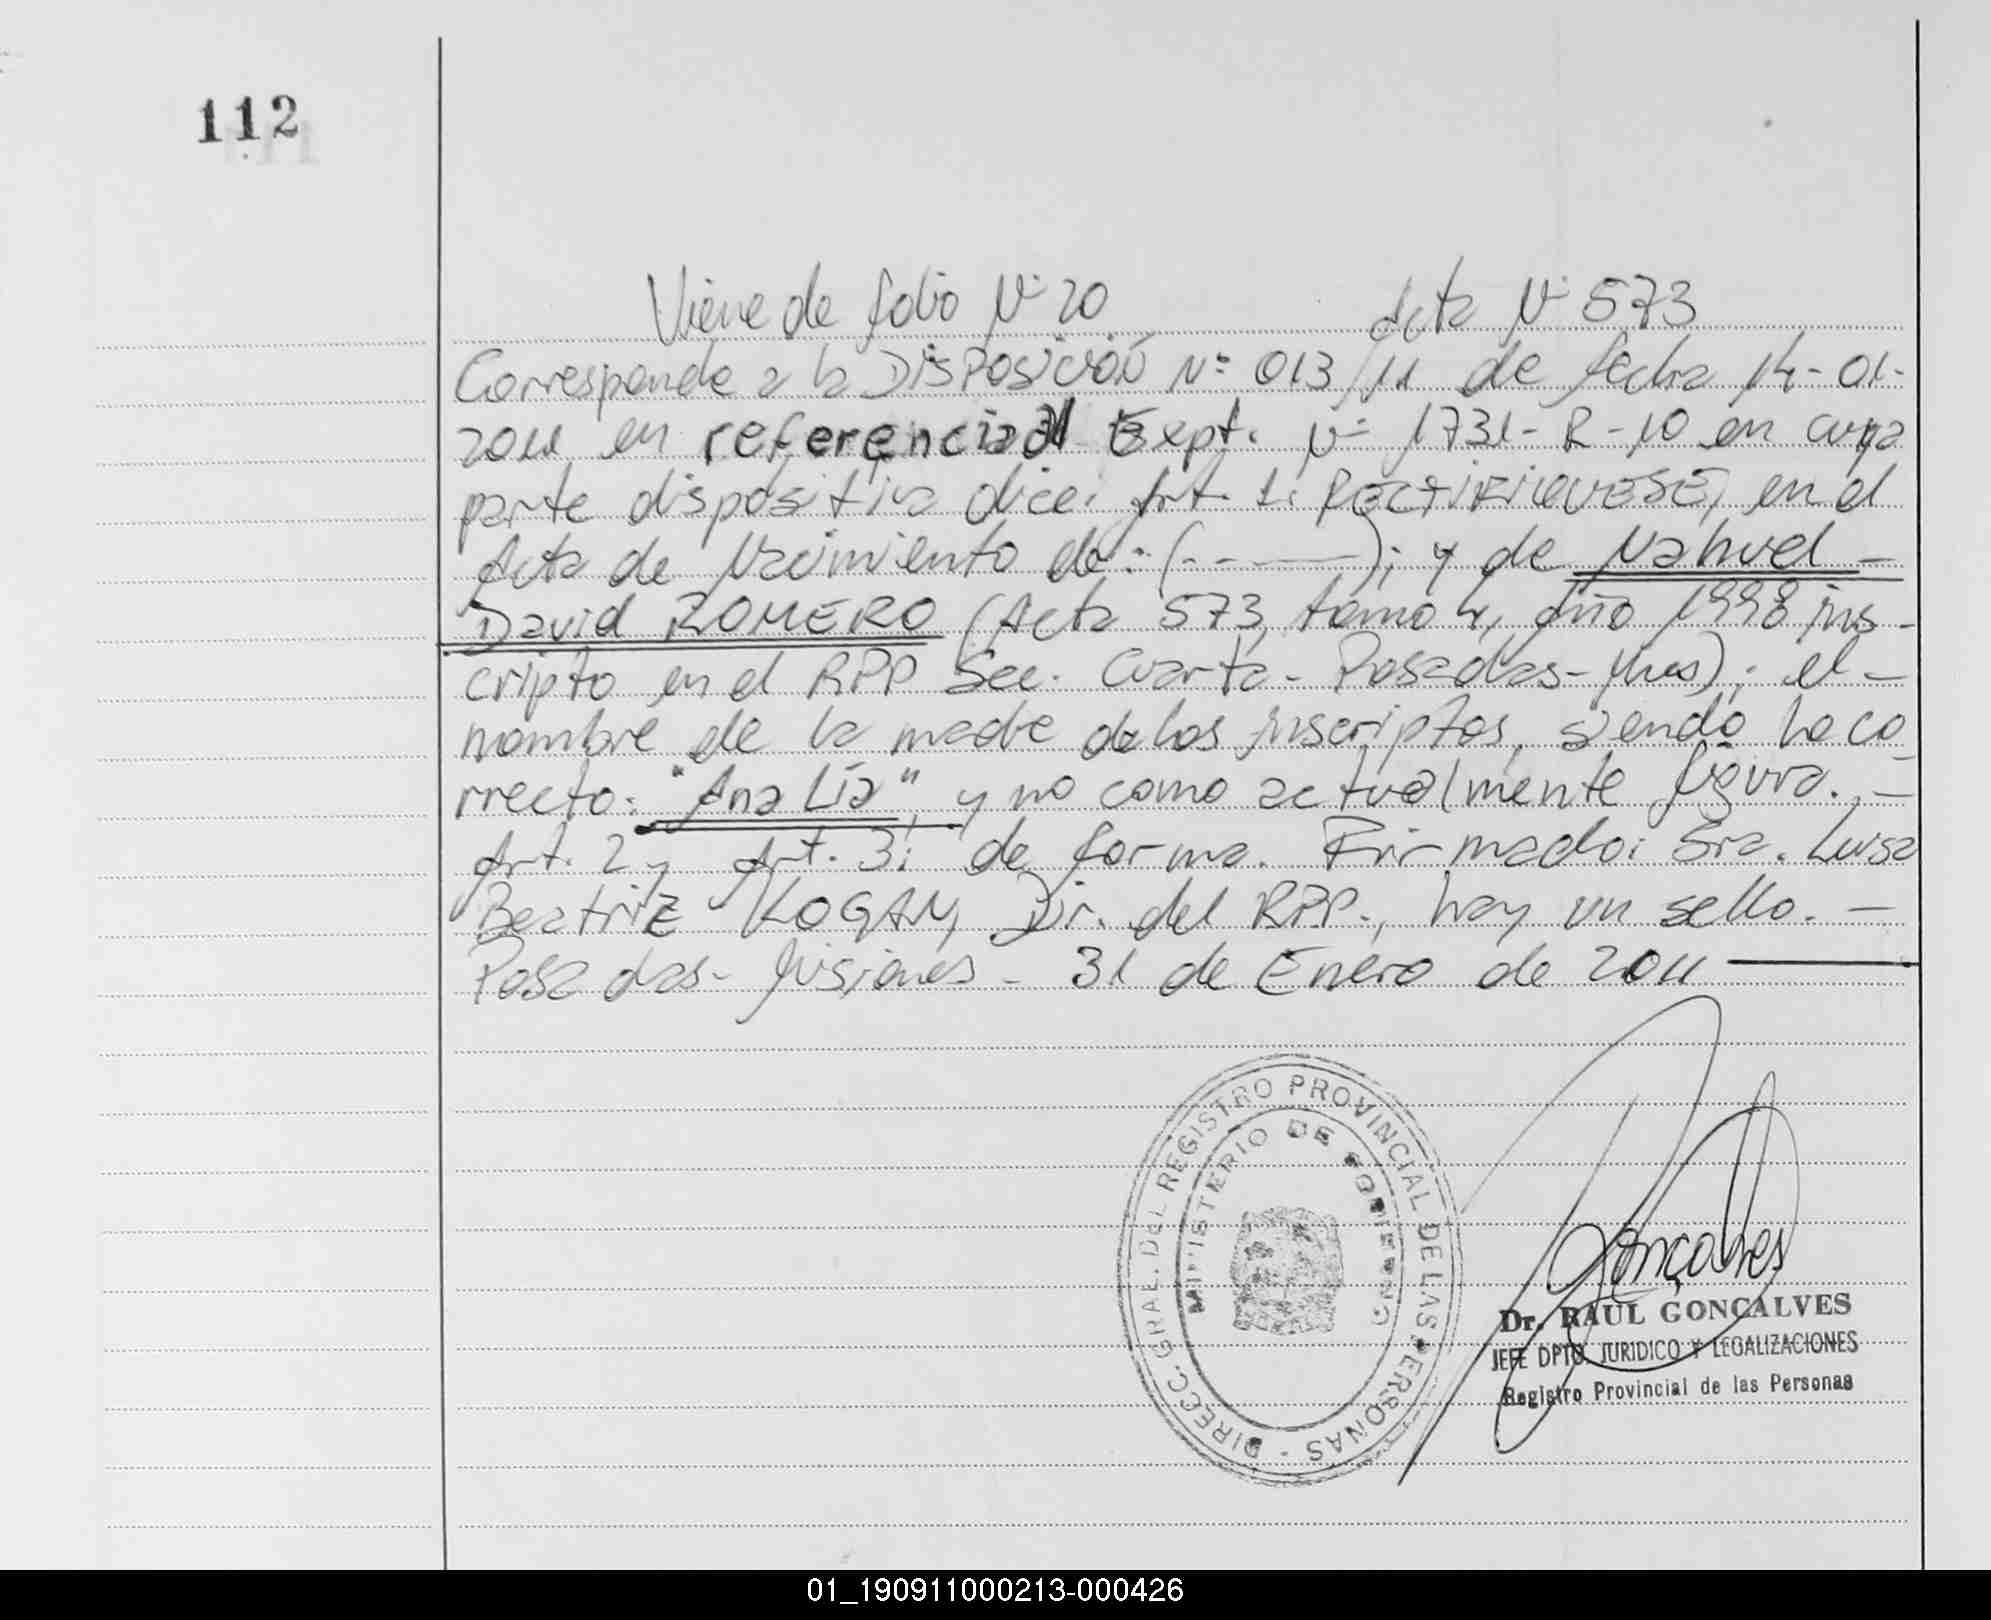 112
Viene de folio Nº 20 Acta Nº 573
Corresponde a la DISPOSICIÓN Nº 013/11 de fecha 14-01-
2011 en referencia al Expt. Nº 1731-R-10 en cuya
parte dispositiva dice: Art. 1: RECTIFIQUESE, en el
Acta de Nacimiento de: (-- ——); y de Nahuel -
David ROMERO (Acta 573, tomo 4, Año 1998 ins-
cripto en el RPP Sec. Cuarta - Posadas - Mnes); el -
nombre de la madre de los inscriptos, siendo lo co
rrecto: "Ana Lía" y no como actualmente figura. -
Art. 2 y Art. 3: de forma. Firmado: Sra. Luisa
Beatriz KOGAN, Dir. del RPP., hay un sello. -
Posadas - Misiones - 31 de Enero de 2011 ——
DIRECC. GRAL. DEL REGISTRO PROVINCIAL DE LAS PERSONAS -
MINISTERIO DE GOBIERNO
Gonçalves
Dr. RAUL GONCALVES
JEFE DPTO. JURIDICO Y LEGALIZACIONES
Registro Provincial de las Personas
01_190911000213-000426